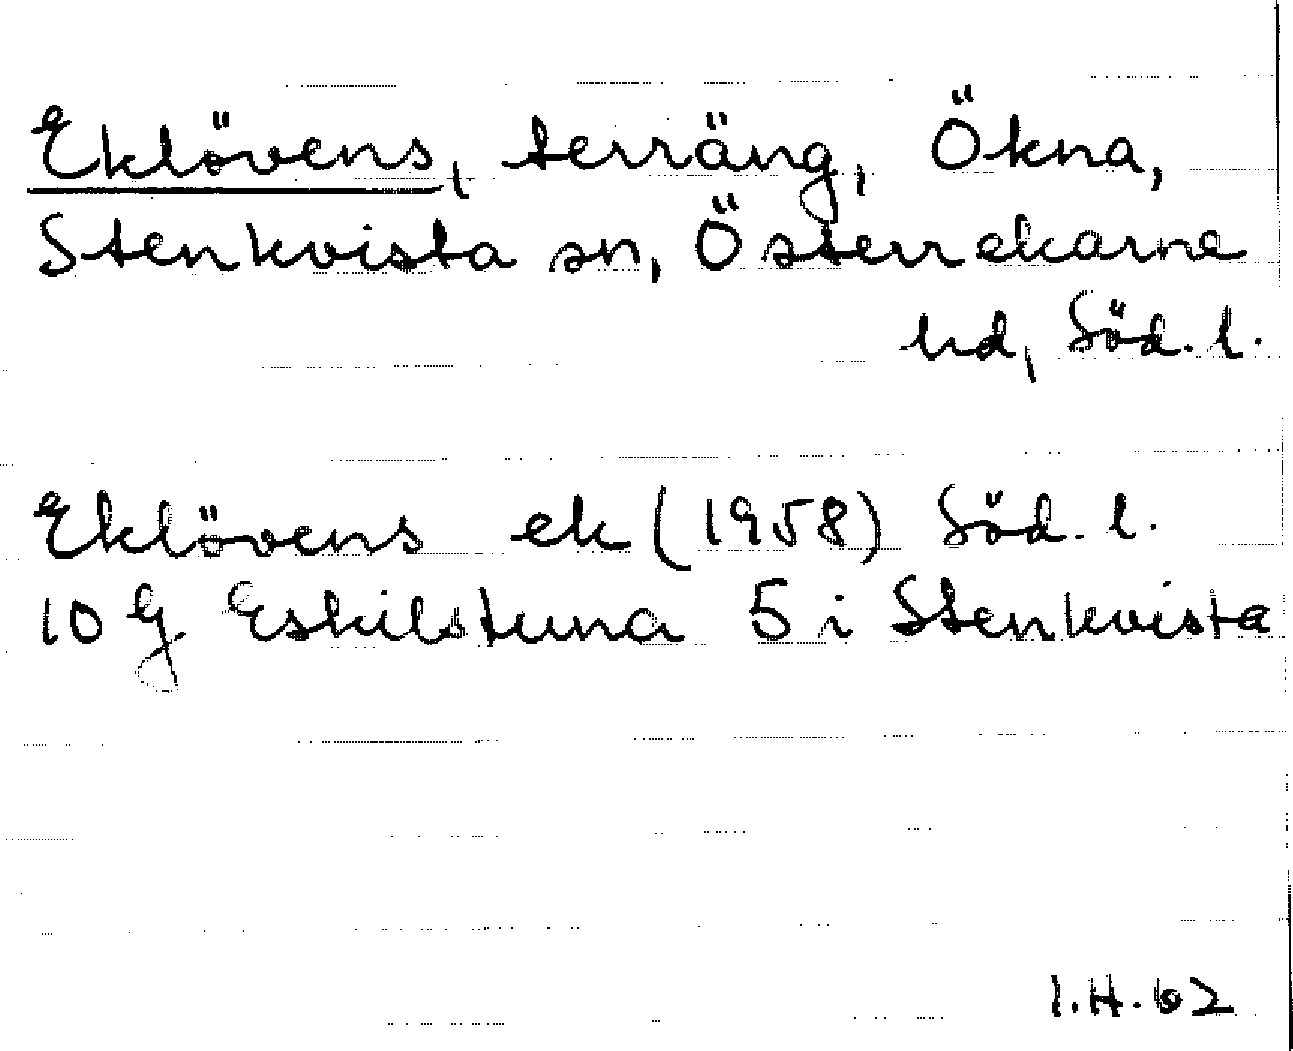 Eklövens, terräng, Ökna,
Stenkvista sn, Österrekarne
hd, Söd. l.
Eklövens ek (1958) Söd. l.
10 G Eskilstuna 5 i Stenkvista
I.H. 62